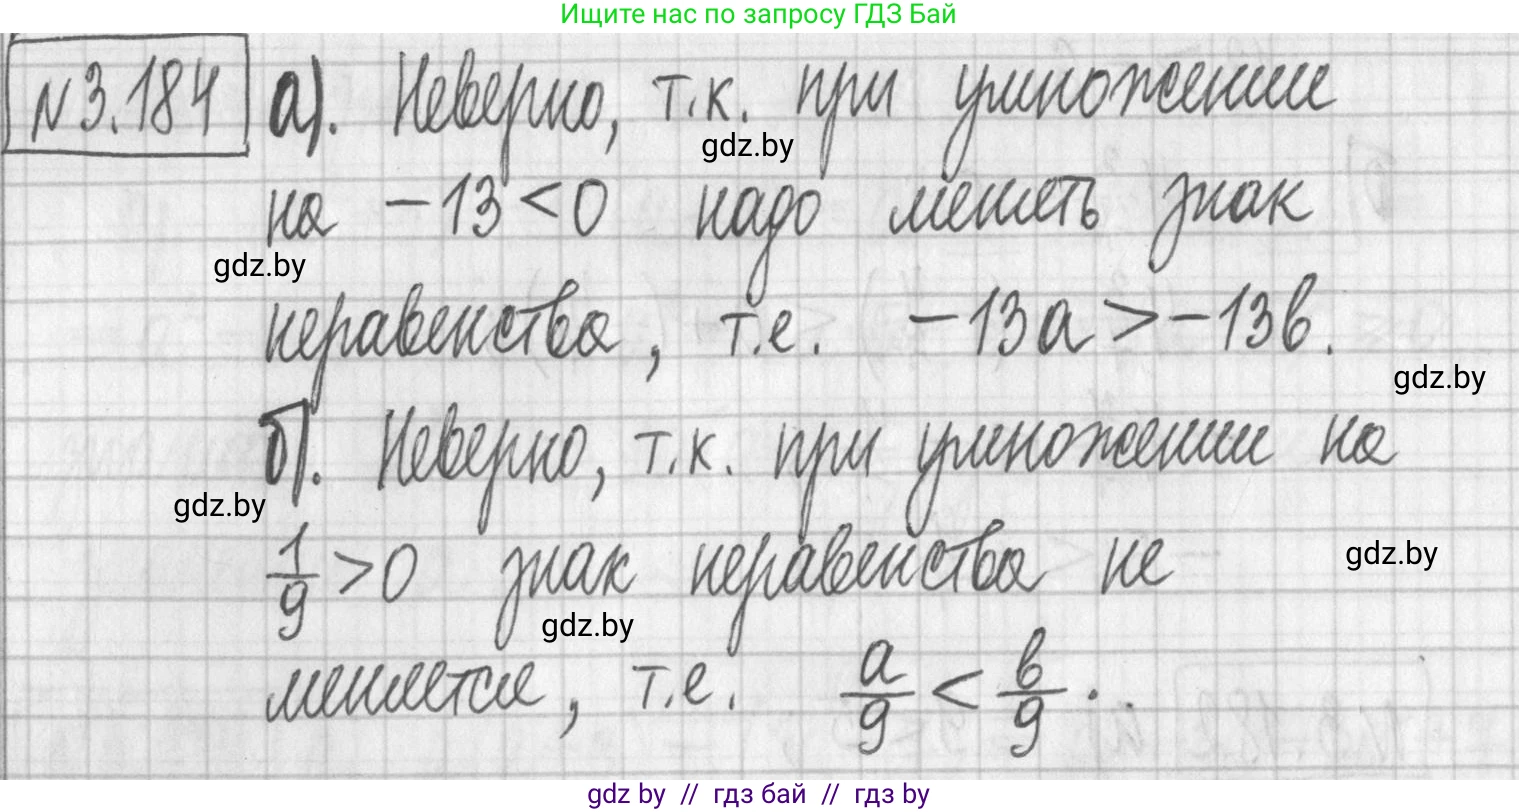 Ищите нас по запросу ГДЗ Бай
№3.184 а). Неверно, т.к. при умножении
gdz.by
на −13<0 надо менять знак
gdz.by
неравенства, т.е. −13a>−13b.
gdz.by
б). Неверно, т.к. при умножении на
gdz.by
1/9>0 знак неравенства не
gdz.by
gdz.by
меняется, т.е. a/9 < b/9.
gdz by // гдз бай // гдз by